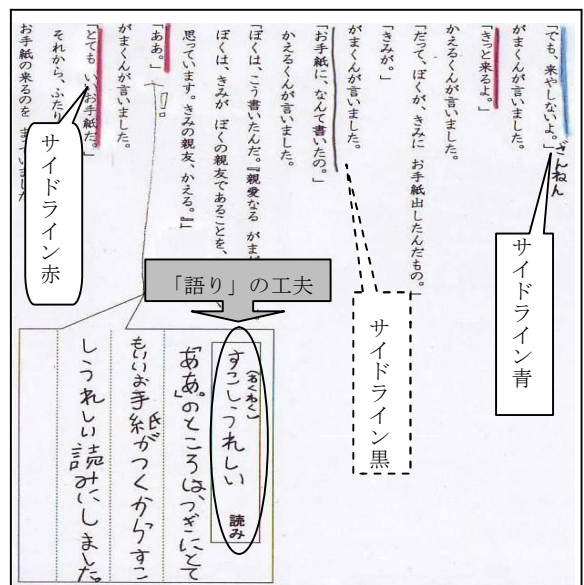 「でも、来やしないよ。」
ざんねん
がまくんが言いました。
「きっと来るよ。」
かえるくんが言いました。
「だって、ぼくが、きみに お手紙出したんだもの。」
「きみが。」
がまくんが言いました。
「お手紙に、なんて書いたの。」
かえるくんが言いました。
「ぼくは、こう書いたんだ。『親愛なる がま
ぼくは、きみが ぼくの親友であることを、
思っています。きみの親友、かえる。』」
「ああ。」
がまくんが言いました。
「とても いいお手紙だ。」
それから、ふたり
お手紙の来るのを まっていました
サイドライン青
サイドライン黒
サイドライン赤
「語り」の工夫
(わくわく)
すこしうれしい 読み
「ああ。」のところは、つぎにとて
もいいお手紙がつくからすこ
しうれしい読みにしました。